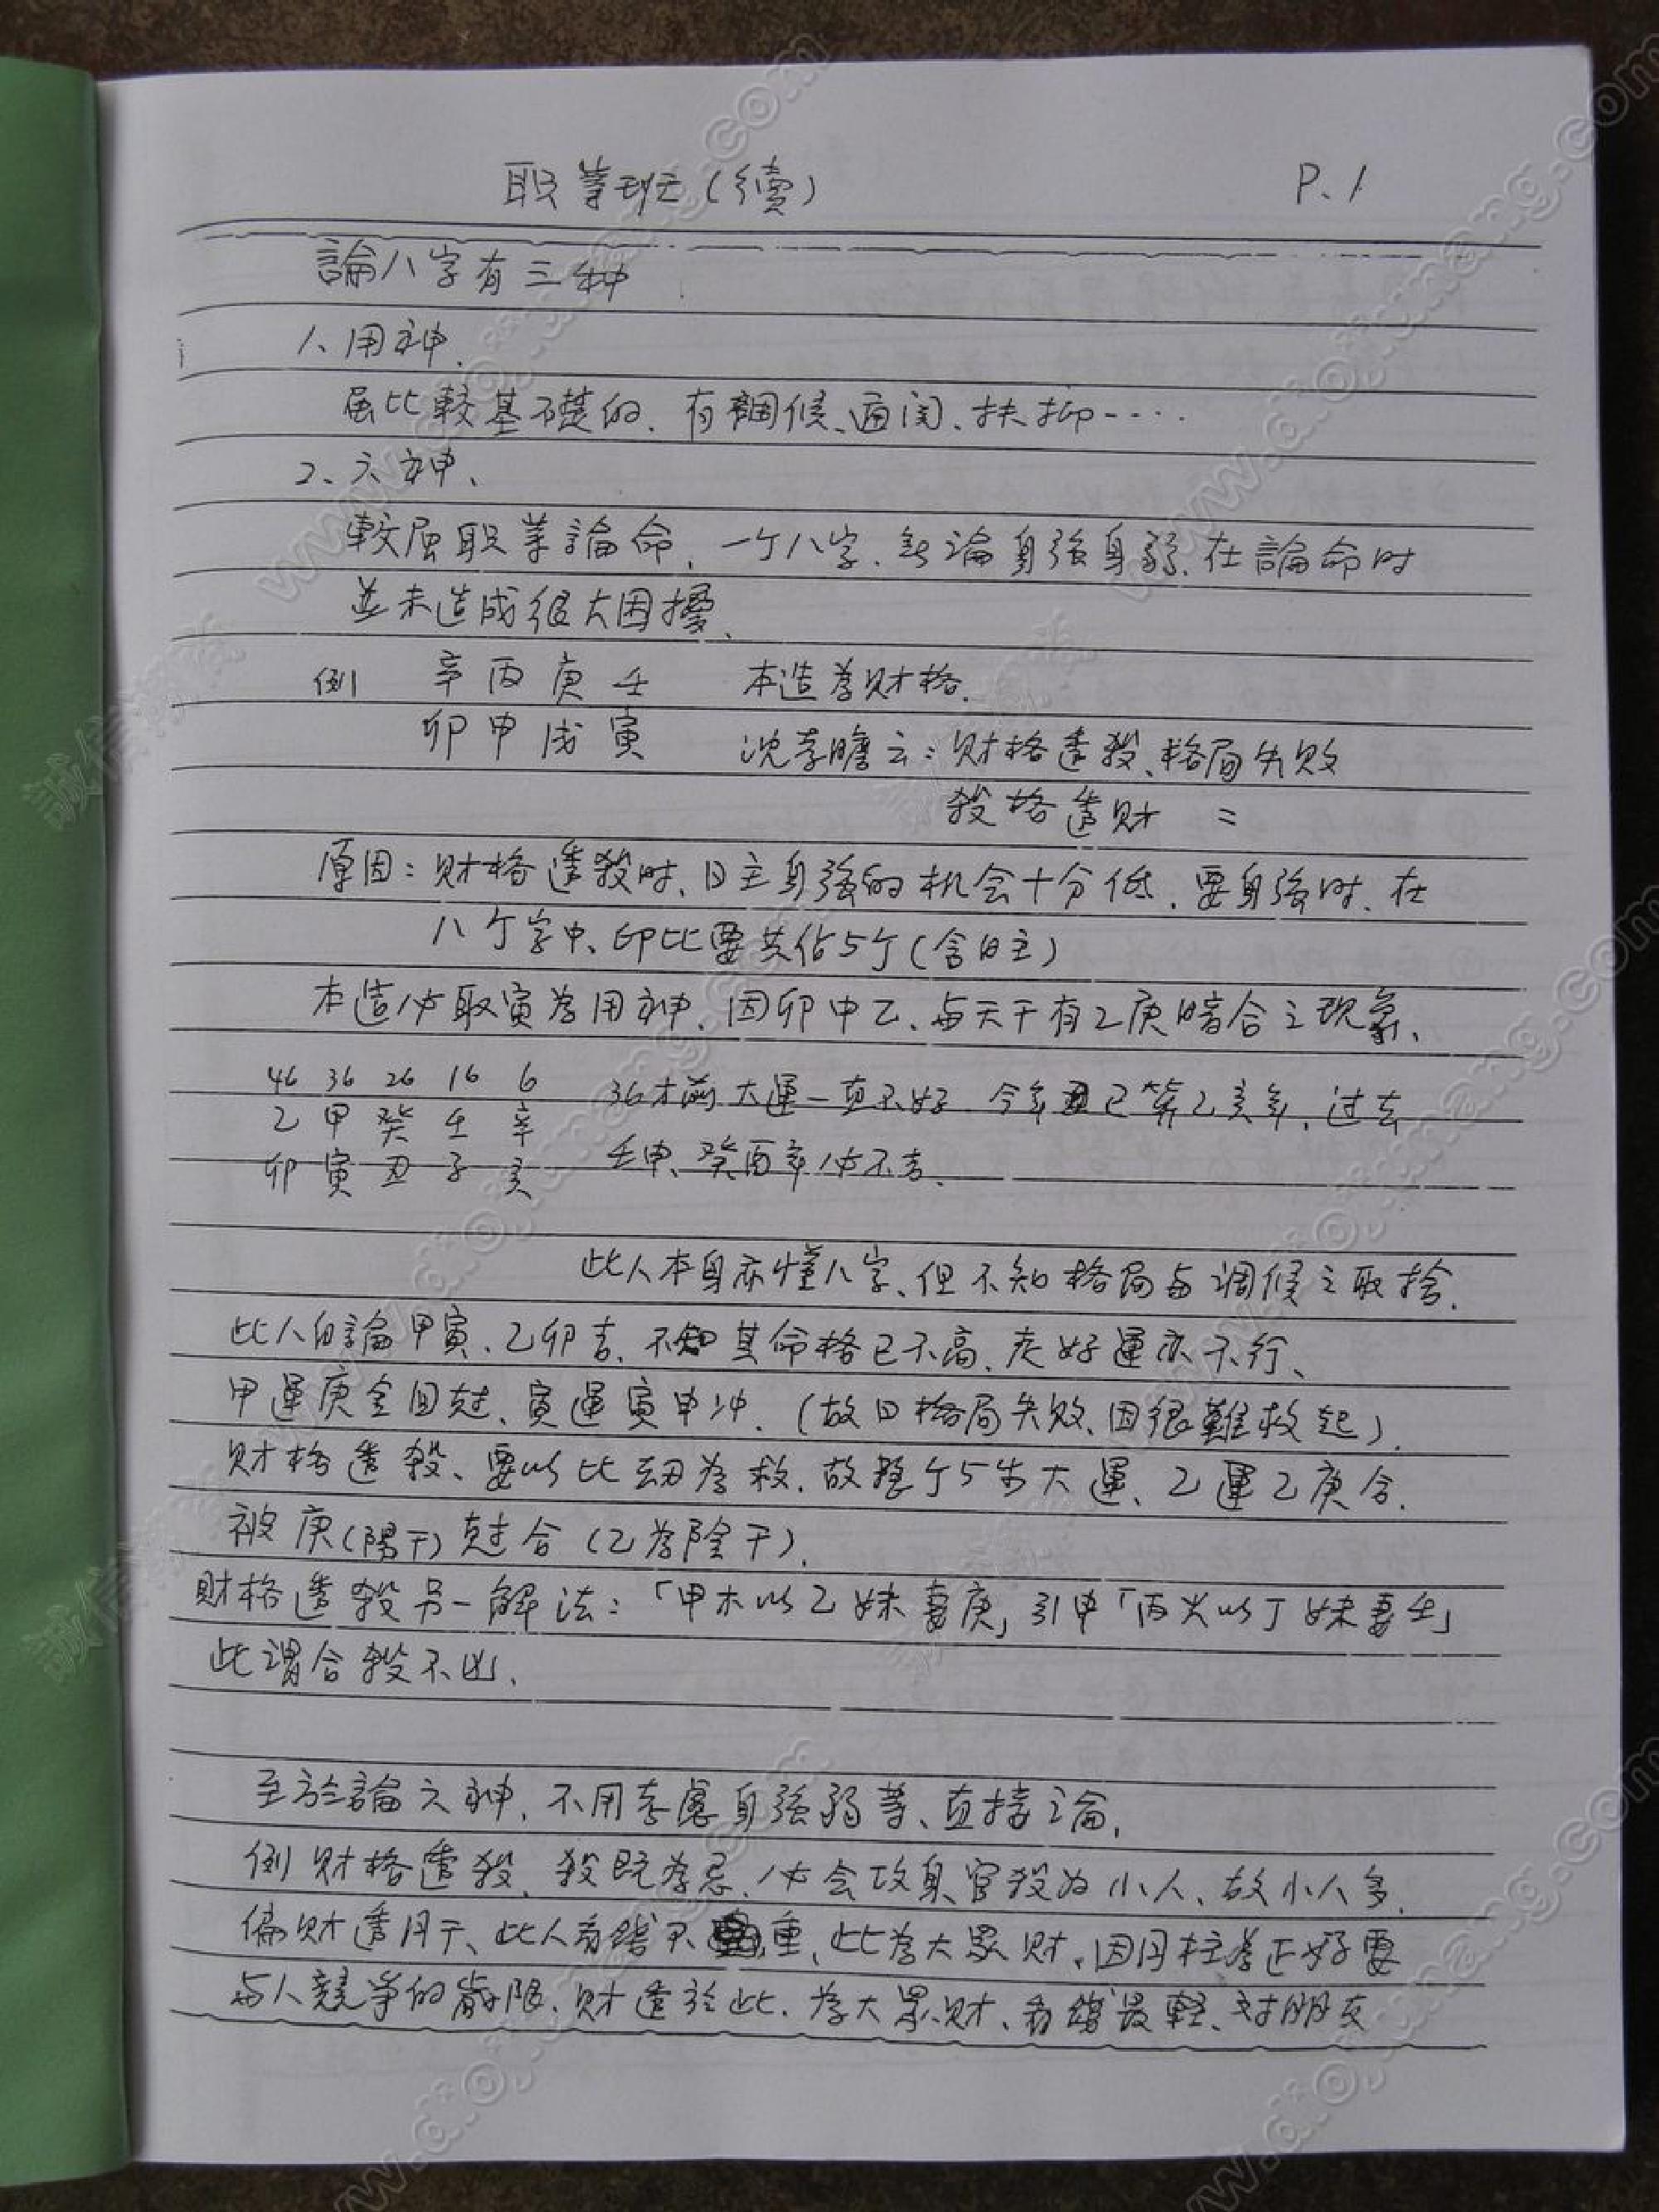 职業班(續) P.1
論八字有三种
1、用神.
屬比較基礎的、有調候、通関、扶抑-····
2、六神、
較屬职業論命, 一个八字、無論身強身弱、在論命时
並未造成很大困擾、
例 辛丙庚壬 本造為财格.
卯申戌寅 沈孝瞻云:财格透殺、格局失敗
殺格透财 =
原因:财格透殺时、日主身強的机会十分低、要身強时、在
八个字中、印比要共佔5个(含日主)
本造必取寅為用神、因卯中乙、与天干有乙庚暗合之現象、
46 36 26 16 6 36才前大運一直不好、今年 已第乙亥年、过去
乙甲癸壬辛 壬申、癸酉年必不吉、
卯寅丑子亥
此人本身亦懂八字、但不知格局与調候之取捨.
此人自論甲寅、乙卯吉、不知其命格已不高、走好運亦不行、
甲運庚金回尅、寅運寅申冲、(故曰格局失敗、因很難救起).
财格透殺、要以比刼為救、故整个5步大運、乙運乙庚合.
被庚(陽干)尅合(乙為陰干).
财格透殺另一解法:「甲木以乙妹妻庚」引申「丙火以丁妹妻壬」
此謂合殺不凶.
至於論六神、不用考慮身強弱等、直接論.
例财格透殺、殺既為忌、必会攻身官殺為小人、故小人多.
偏财透月干、此人看錢不 重、此為大眾财、因月柱為正好要
与人競爭的歲限、财透於此、為大眾财、看錢最輕、対朋友